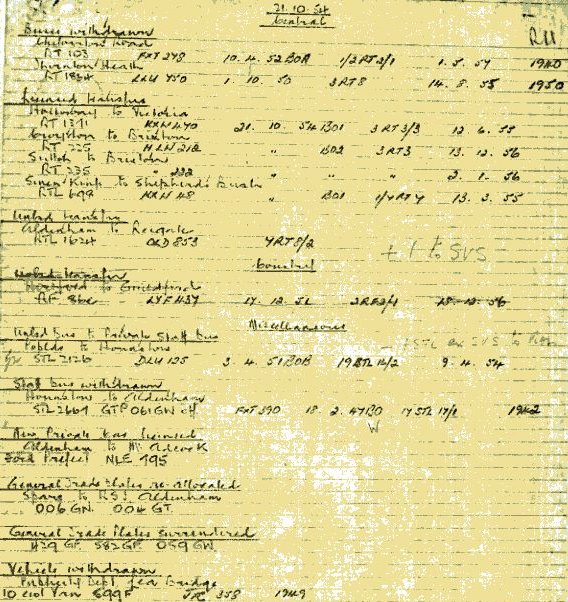 21.10.54
Central
RM
Buses withdrawn
Road
RT 103 FXT 278 10.4.52 BOR 1/2RT2/1 1.5.57 1940
Thornton Heath
RT 1834 LLU 750 1.10.50 3RT8 14.8.55 1950
Licensed transfers
to Victoria
RT 1371 KXW 470 21.10.54 BO1 3RT3/3 12.6.55
Croydon to Brixton
RT 225 HLW 212 " BO2 3RT3 13.12.56
Sutton to Brixton
RT 235 " 222 " " " 2.1.56
to Shepherd's Bush
RTL 698 KXW 48 " BO1 1/4RT4 13.3.55
Unlicd transfer
Aldenham to Reigate
RTL 1624 OLD 853 4RT8/2
+ 1 to SVS
Country
Unlicd transfer
Hertford to Guildford
RF LYF 437 17.12.52 2RF2/1 18.12.56
Miscellaneous
Unlicd bus to Private Staff bus
to Hounslow
STL 2126 DLU 125 3.4.51 BOB 19STL16/2 9.4.54
Staff bus withdrawn
Hounslow to Aldenham
STL 2669 GTP 061GW FXT 390 18.2.47 BO 17STL17/1 1942
W
New Private Car licensed
Aldenham to Mr Adcock
Ford Prefect NLE 795
General Trade Plates re-allocated
Spare to Aldenham
006 GN. 004 GT.
General Trade Plates surrendered
429 GF 582 GP 059 GW
Vehicle withdrawn
Publicity Dept. Lea Bridge
10 cwt Van 699F 358 1949